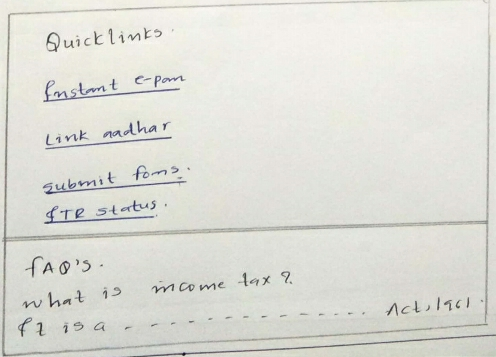 Quicklinks.
Instant e-pan
Link aadhar
submit foms.
ITR status.
FAQ's.
what is income tax?
It is a - - - - - - - - - - - - - - Act, 1961.